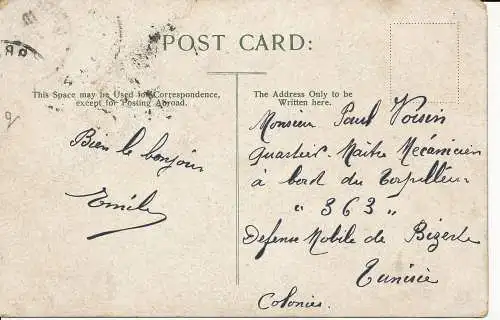 POST CARD:
This Space may be Used for Correspondence,
except for Posting Abroad.
The Address Only to be
Written here.
Bien le bonjour
Emile
Monsieur Paul Vousin
Quartier-Maître Mécanicien
à bord du Torpilleur
" 363 "
Defense Mobile de Bizerte
Tunisie
Colonies.